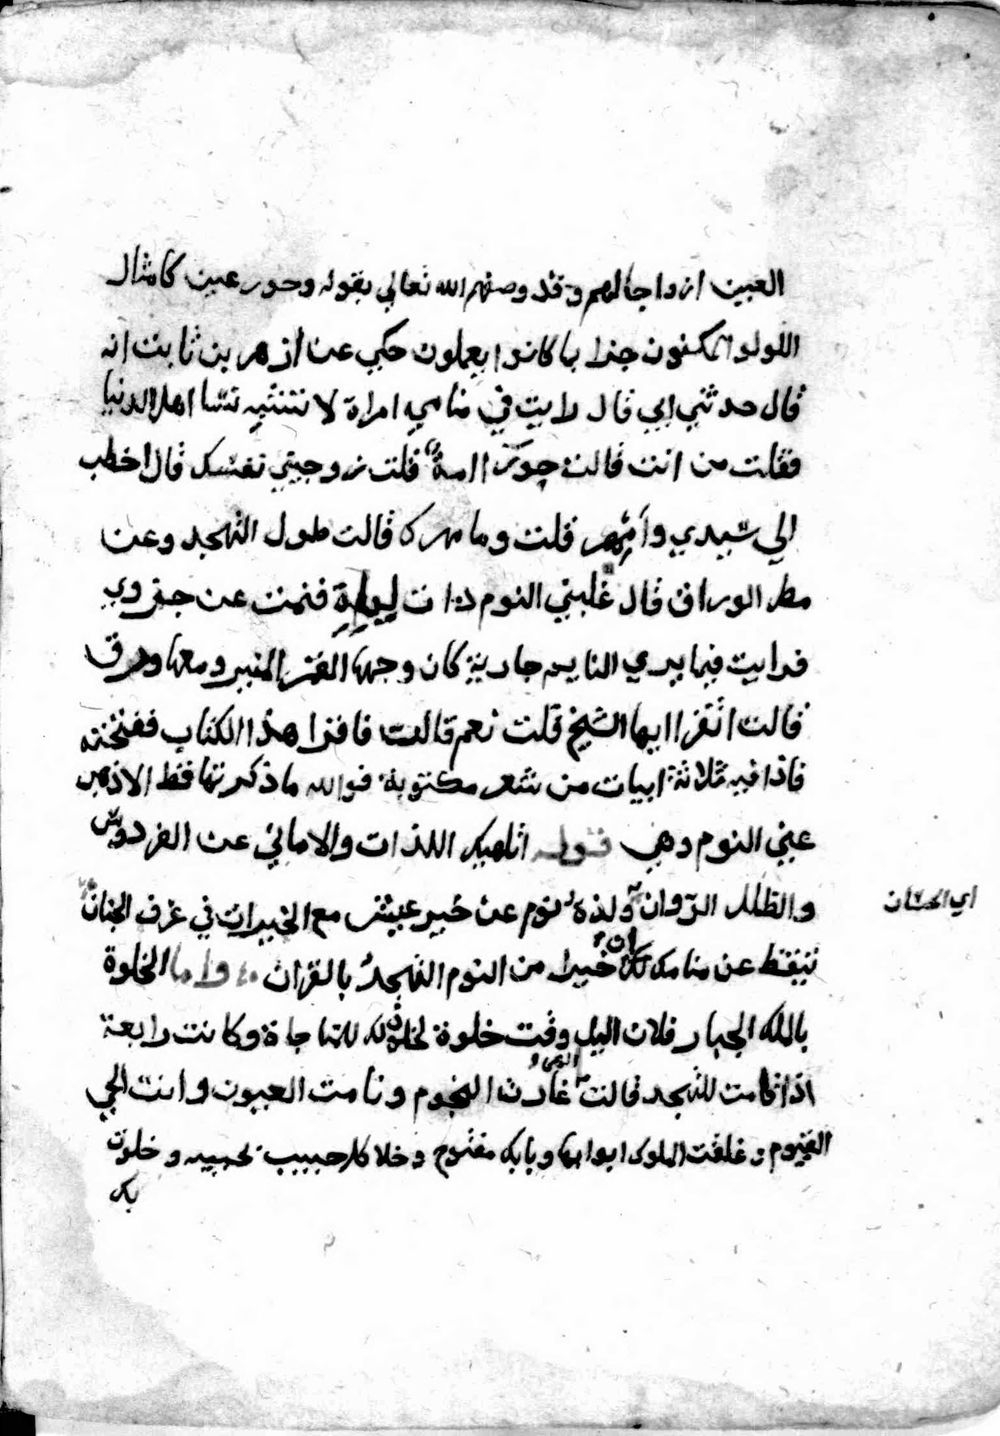 العين ازواجا لهم وقد وصفهم الله تعالي بقوله وحور عين كامثال
اللولو المكنون جزا بما كانوا يعملون حكي عن ازهر بن ثابت انه
قال حدثني ابي قال رايت في منامي امراة لا تشبه نسا اهل الدنيا
فقلت من انت قالت حورا امة فلت زوجيني نفسك قال اخطب
الي سيدي وامهر قلت وما مهرك قالت طول التهجد وعن
مطر الوراق قال غلبني النوم ذات ليلة فنمت عن جزوي
فرايت فيما يري النايم جارية كان وجهها القمر المنير ومعها ورق
فالت اتقرا ايها الشيخ قلت نعم قالت فاقرا هذا الكتاب ففتحته
فاذا فيه ثلاثة ابيات من شعر مكتوبة فوالله ما ذكرتها قط الا ذهب
عني النوم وهي اتلهيك اللذات والاماني عن الفردوس
والظلل الدوان ولذة نوم عن خير عيش مع الخيرات في غرف الجنان
اي الحسان
تيقظ عن منامك ان خيرا من النوم التهجد بالقران واما الخلوة
بالملك الجبار فلان اليل وقت خلوة لخلوته للمناجاة وكانت رابعة
اذا قامت للتهجد قالت الهي غارت النجوم ونامت العيون وانت الحي
القيوم وغلقت الملوك ابوابها وبابك مفتوح وخلا كل حبيب بحبيبه وخلوت
بك